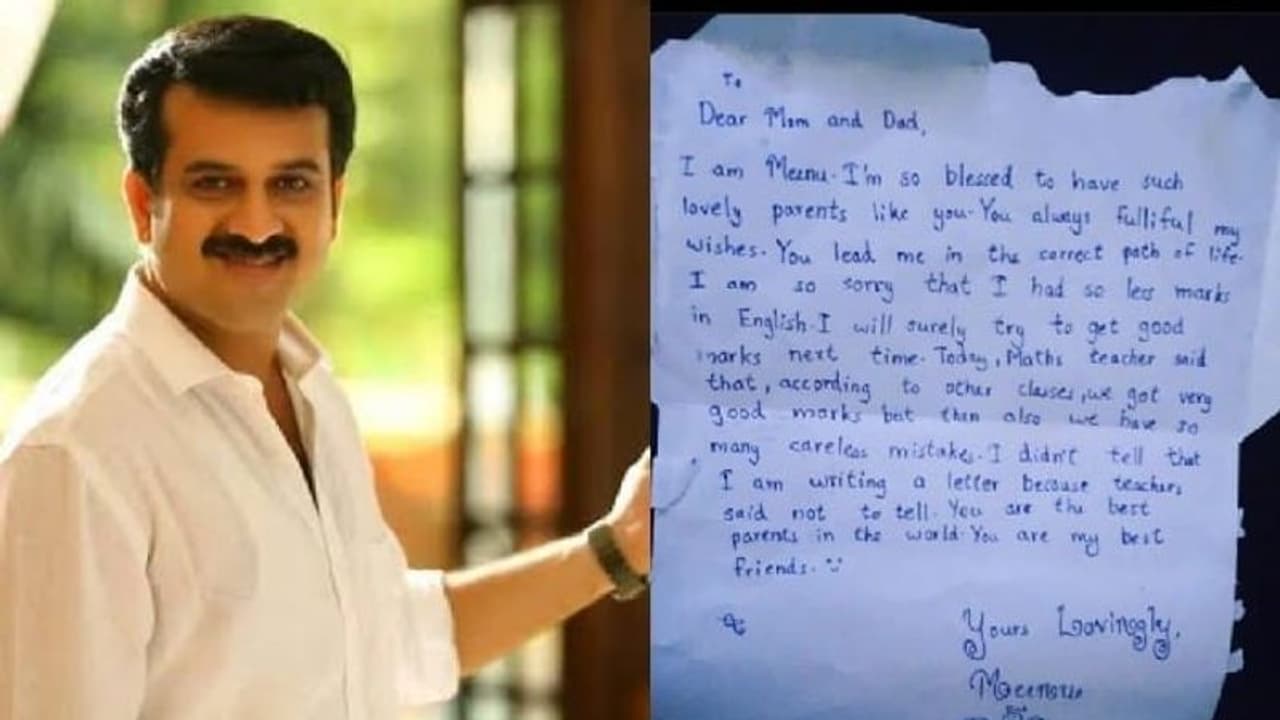 To
Dear Mom and Dad,
I am Meenu. I'm so blessed to have such
lovely parents like you. You always fulliful my
wishes. You lead me in the correct path of life.
I am so sorry that I had so less marks
in English. I will surely try to get good
marks next time. Today, Maths teacher said
that, according to other classes, we got very
good marks but then also we have so
many careless mistakes. I didn't tell that
I am writing a letter because teachers
said not to tell. You are the best
parents in the world. You are my best
friends.
Yours Lovingly,